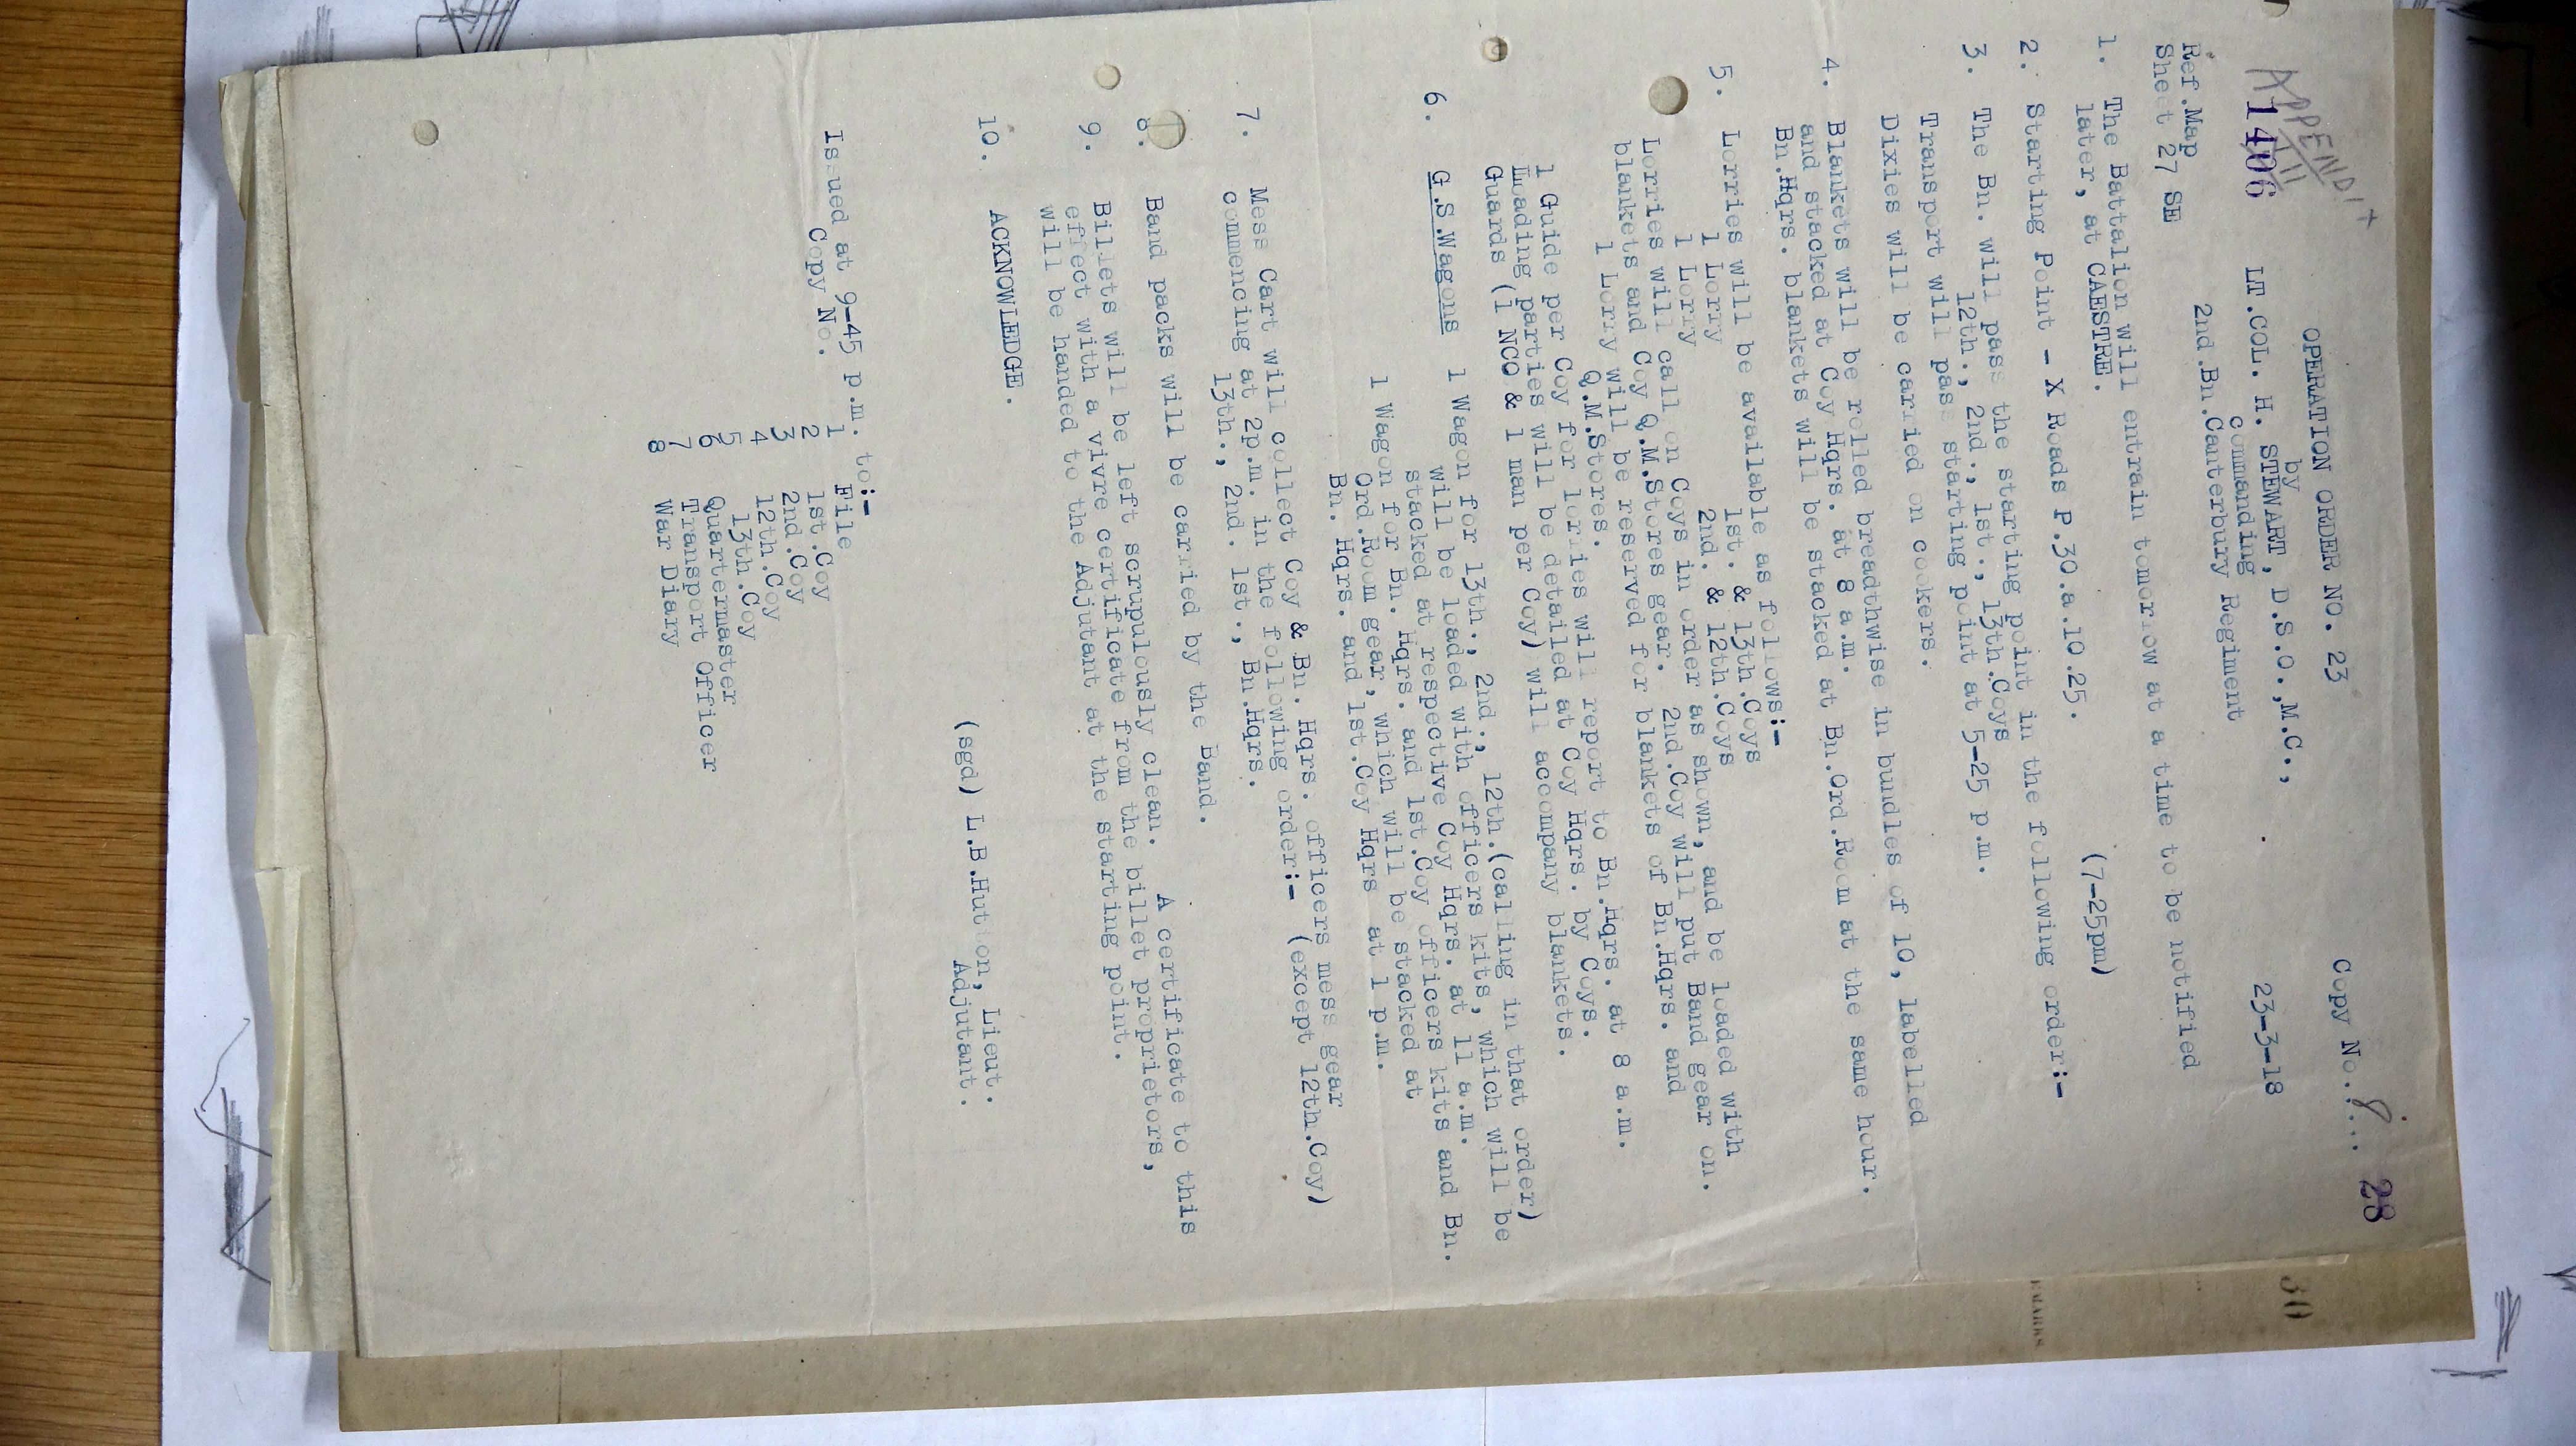 Copy No. 8.... 28
OPERATION ORDER NO. 23
by
APPENDIX
XIII
1406 LT.COL. H. STEWART, D.S.O.,M.C., 23-3-18
commanding
2nd.Bn.Canterbury Regiment
Ref.Map
Sheet 27 SE
1. The Battalion will entrain tomorrow at a time to be notified
later, at CAESTRE. (7-25pm)
2. Starting Point - X Roads P.30.a.10.25.
3. The Bn. will pass the starting point in the following order:-
12th., 2nd., 1st., 13th.Coys
Transport will pass starting point at 5-25 p.m.
Dixies will be carried on cookers.
4. Blankets will be rolled breadthwise in bundles of 10, labelled
and stacked at Coy Hqrs. at 8 a.m.
Bn.Hqrs. blankets will be stacked at Bn.Ord.Room at the same hour.
5. Lorries will be available as follows:-
1 Lorry 1st. & 13th.Coys
1 Lorry 2nd. & 12th.Coys
Lorries will call on Coys in order as shown, and be loaded with
blankets and Coy Q.M.Stores gear. 2nd.Coy will put Band gear on.
1 Lorry will be reserved for blankets of Bn.Hqrs. and
Q.M.Stores.
1 Guide per Coy for lorries will report to Bn.Hqrs. at 8 a.m.
Loading parties will be detailed at Coy Hqrs. by Coys.
Guards (1 NCO & 1 man per Coy) will accompany blankets.
6. G.S.Wagons 1 Wagon for 13th., 2nd., 12th.(calling in that order)
will be loaded with officers kits, which will be
stacked at respective Coy Hqrs. at 11 a.m.
1 Wagon for Bn. Hqrs. and 1st.Coy officers kits and Bn.
Ord.Room gear, which will be stacked at
Bn. Hqrs. and 1st.Coy Hqrs at 1 p.m.
7. Mess Cart will collect Coy & Bn. Hqrs. officers mess gear
commencing at 2p.m. in the following order:- (except 12th.Coy)
13th., 2nd. 1st., Bn.Hqrs.
8. Band packs will be carried by the Band.
9. Billets will be left scrupulously clean. A certificate to this
effect with a vivre certificate from the billet proprietors,
will be handed to the Adjutant at the starting point.
10. ACKNOWLEDGE.
(sgd) L.B.Hutton, Lieut.
Adjutant.
Issued at 9-45 p.m. to:-
Copy No. 1 File
2 1st.Coy
3 2nd.Coy
4 12th.Coy
5 13th.Coy
6 Quartermaster
7 Transport Officer
8 War Diary
30